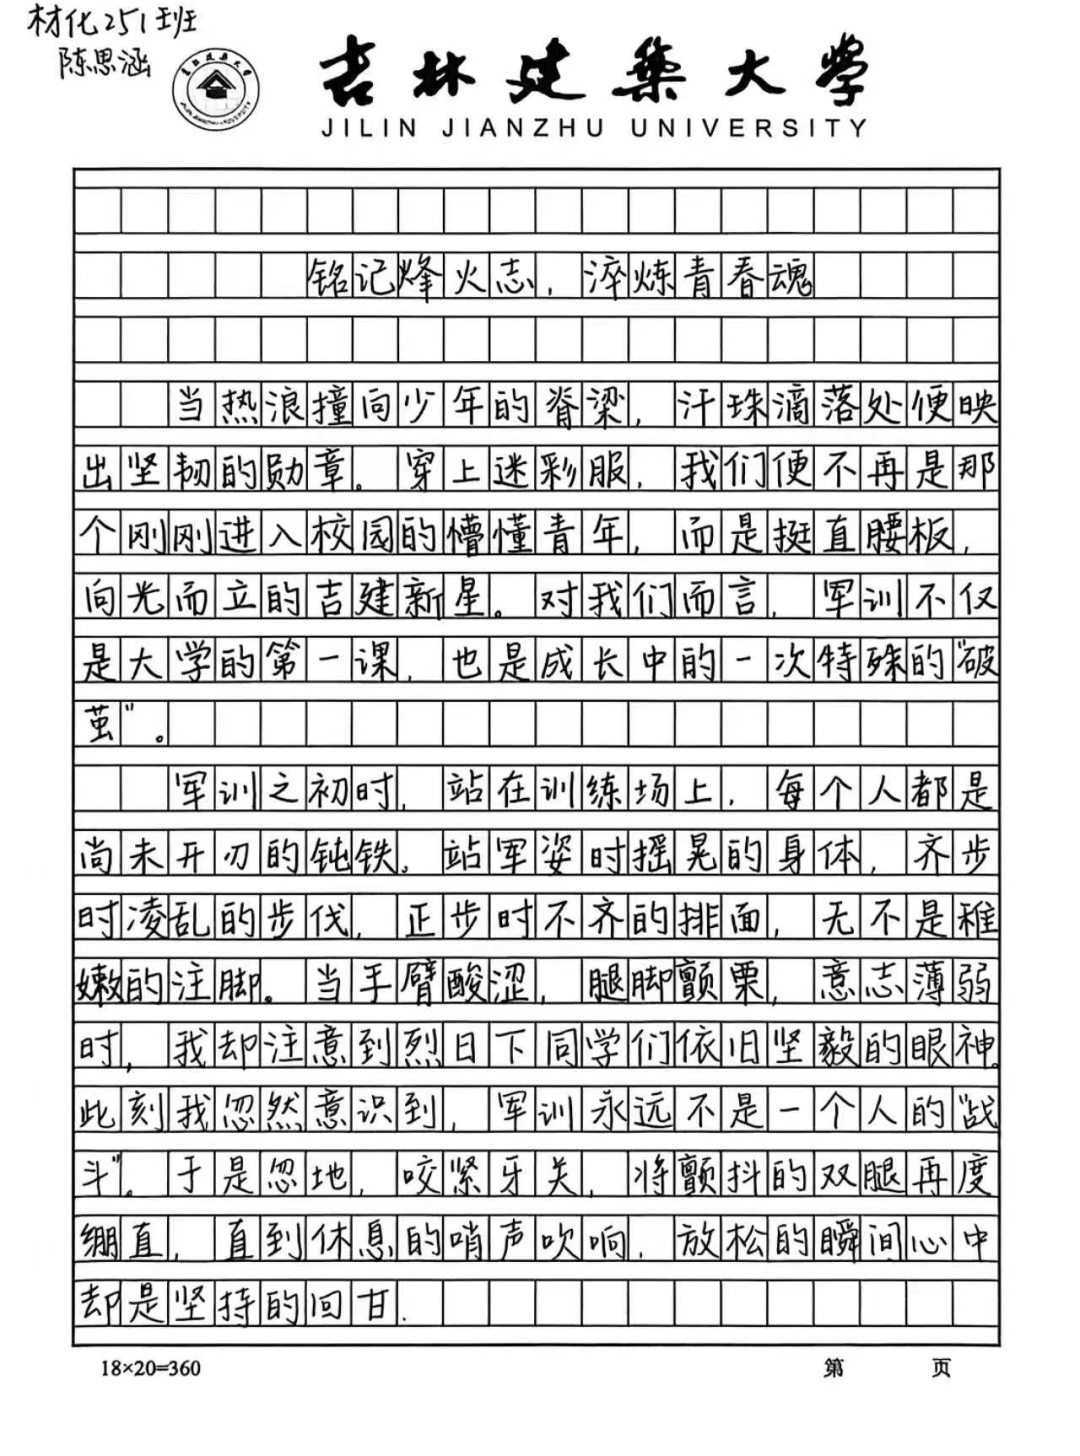 材化251班
陈思涵
吉林建筑大学
JILIN JIANZHU UNIVERSITY
铭记烽火志，淬炼青春魂
当热浪撞向少年的脊梁，汗珠滴落处便映
出坚韧的勋章。穿上迷彩服，我们便不再是那
个刚刚进入校园的懵懂青年，而是挺直腰板，
向光而立的吉建新星。对我们而言，军训不仅
是大学的第一课，也是成长中的一次特殊的“破
茧”。
军训之初时，站在训练场上，每个人都是
尚未开刃的钝铁。站军姿时摇晃的身体，齐步
时凌乱的步伐，正步时不齐的排面，无不是稚
嫩的注脚。当手臂酸涩，腿脚颤栗，意志薄弱
时，我却注意到烈日下同学们依旧坚毅的眼神。
此刻我忽然意识到，军训永远不是一个人的“战
斗”。于是忽地，咬紧牙关，将颤抖的双腿再度
绷直，直到休息的哨声吹响，放松的瞬间心中
却是坚持的回甘.
18×20=360
第 页